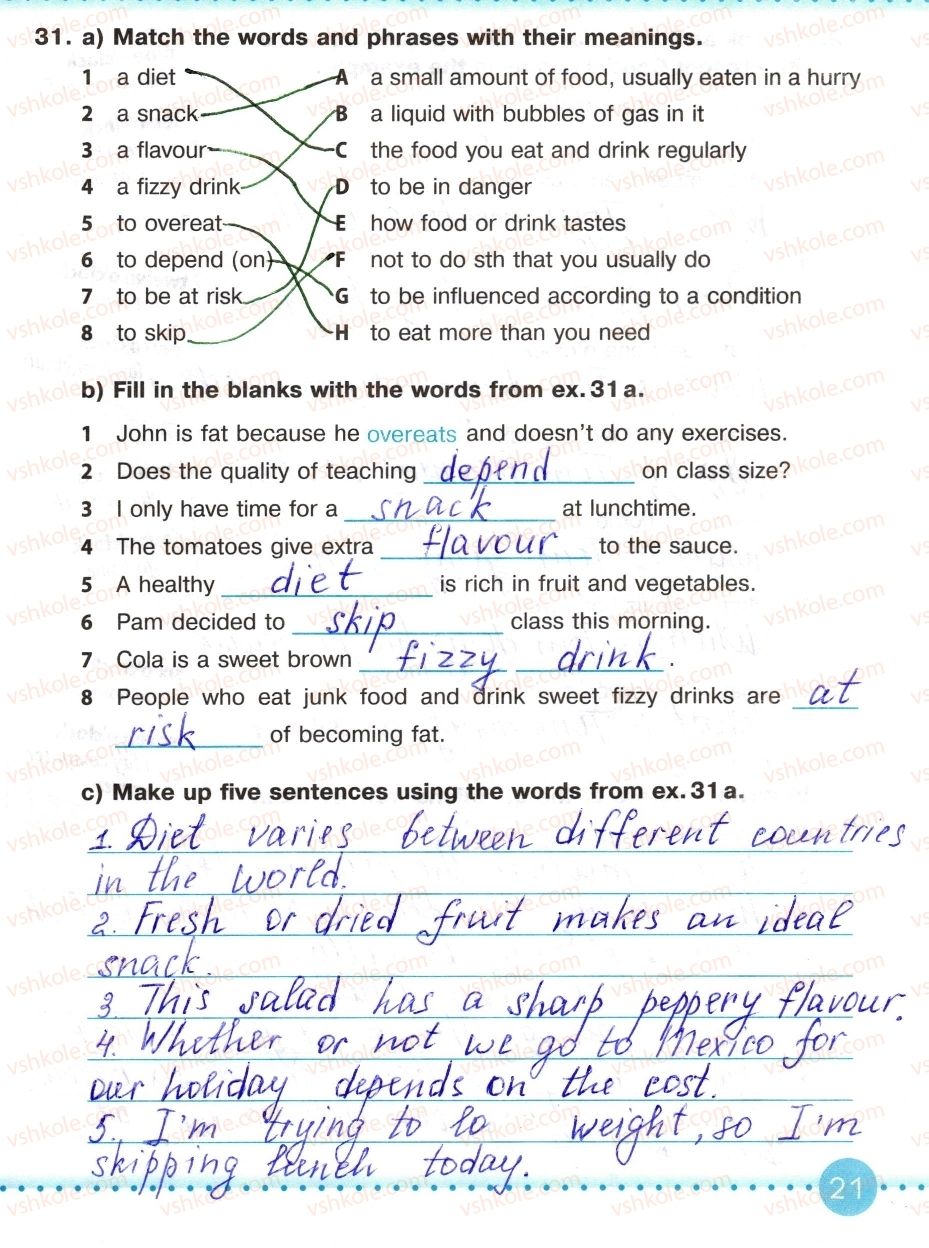 31. a) Match the words and phrases with their meanings.
1 a diet A a small amount of food, usually eaten in a hurry
2 a snack B a liquid with bubbles of gas in it
3 a flavour C the food you eat and drink regularly
4 a fizzy drink D to be in danger
5 to overeat E how food or drink tastes
6 to depend (on) F not to do sth that you usually do
7 to be at risk G to be influenced according to a condition
8 to skip H to eat more than you need
b) Fill in the blanks with the words from ex. 31 a.
1 John is fat because he overeats and doesn't do any exercises.
2 Does the quality of teaching depend on class size?
3 I only have time for a snack at lunchtime.
4 The tomatoes give extra flavour to the sauce.
5 A healthy diet is rich in fruit and vegetables.
6 Pam decided to skip class this morning.
7 Cola is a sweet brown fizzy drink.
8 People who eat junk food and drink sweet fizzy drinks are at
risk of becoming fat.
c) Make up five sentences using the words from ex. 31 a.
1. Diet varies between different countries
in the world.
2. Fresh or dried fruit makes an ideal
snack.
3. This salad has a sharp peppery flavour.
4. Whether or not we go to Mexico for
our holiday depends on the cost.
5. I'm trying to lo weight, so I'm
skipping lunch today.
21
vshkole.com